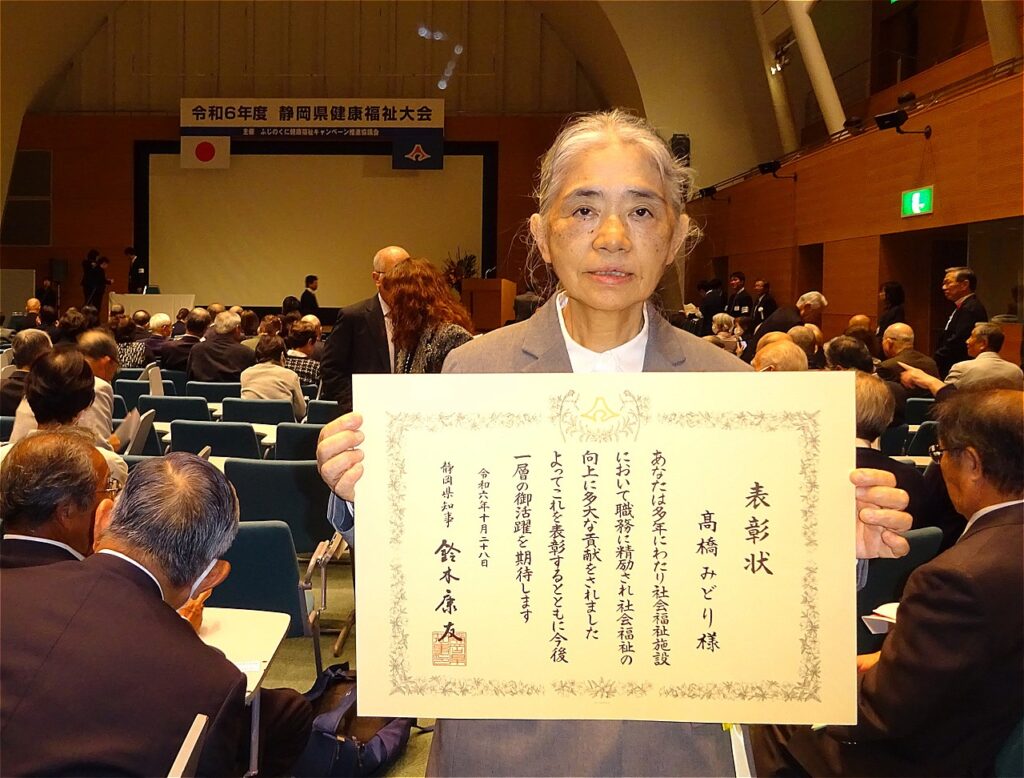 令和6年度 静岡県健康福祉大会
主催 ふじのくに健康福祉キャンペーン推進協議会
表彰状
髙橋みどり様
あなたは多年にわたり社会福祉施設
において職務に精励され社会福祉の
向上に多大な貢献をされました
よってこれを表彰するとともに今後
一層の御活躍を期待します
令和六年十月二十八日
静岡県知事 鈴木康友